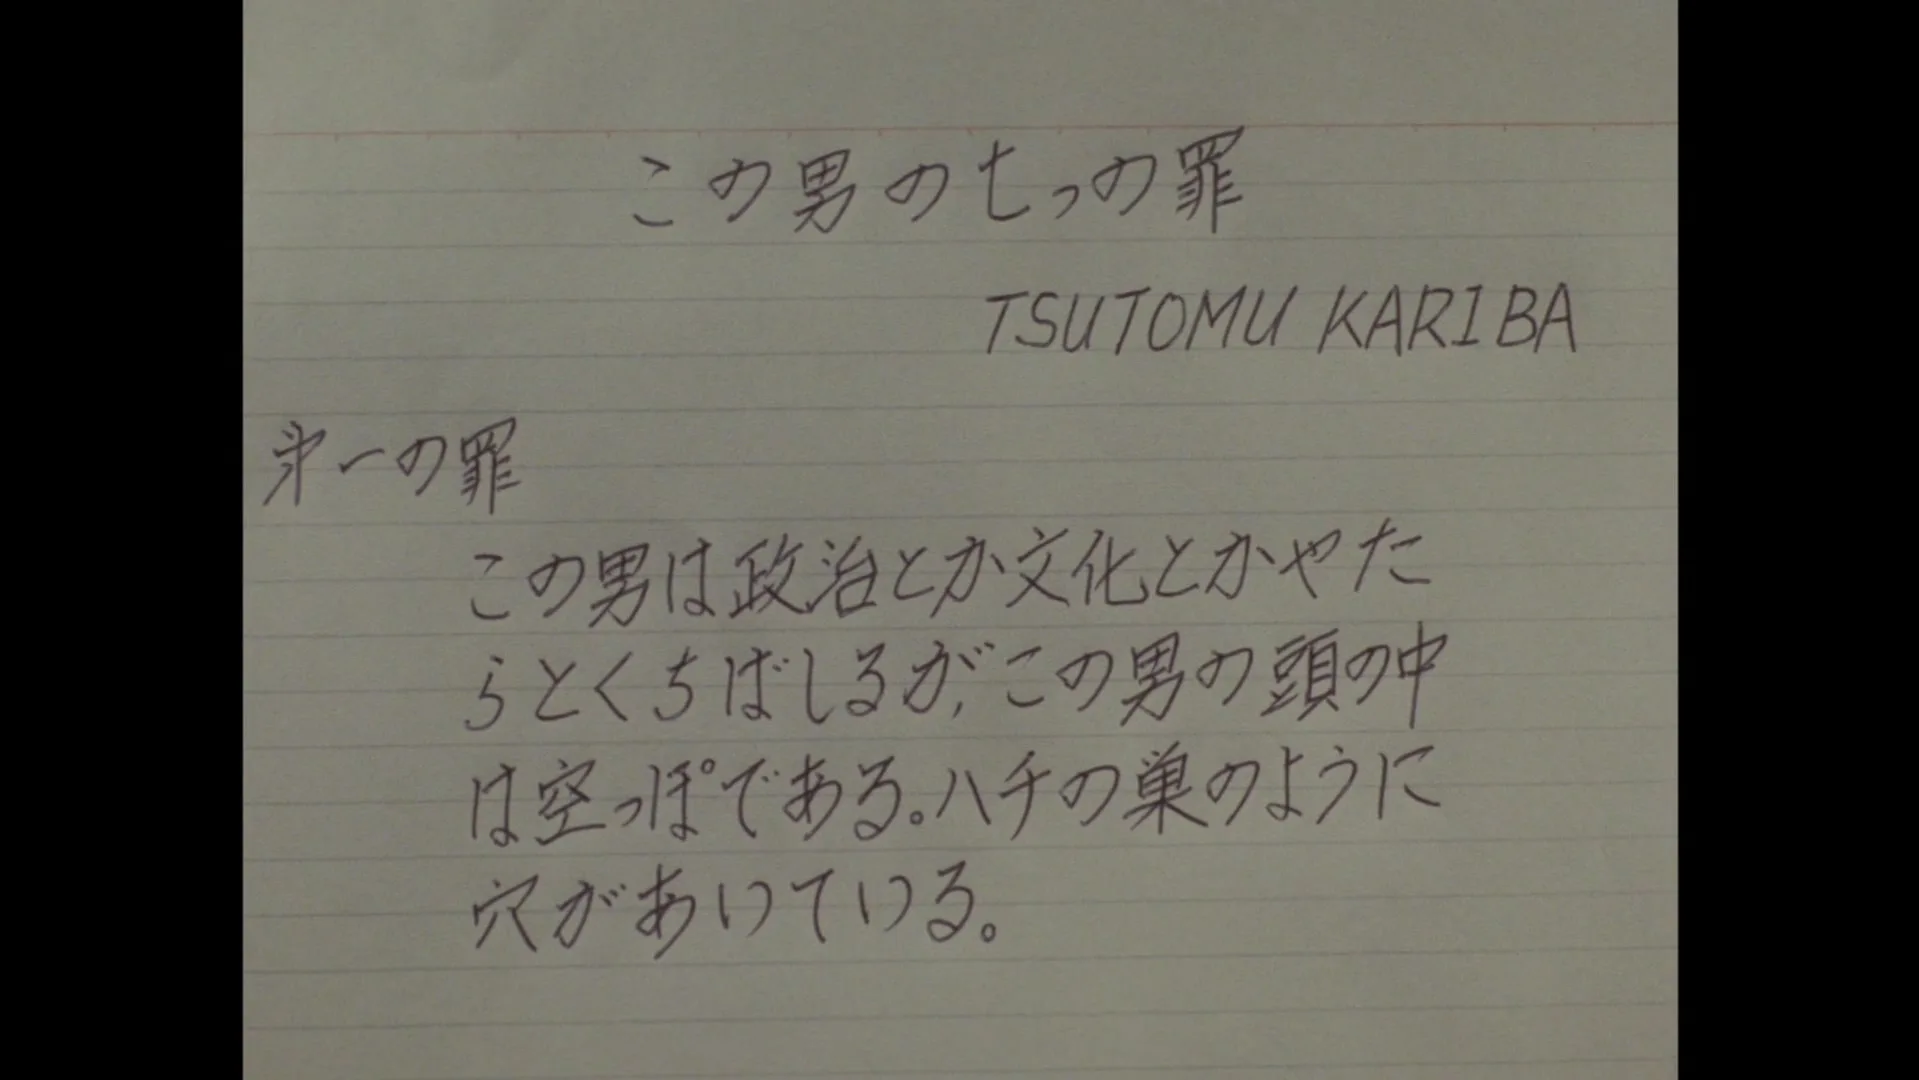 この男の七つの罪
TSUTOMU KARIBA
㐧一の罪
この男は政治とか文化とかやた
らとくちばしるが,この男の頭の中
は空っぽである。ハチの巣のように
穴があいている。